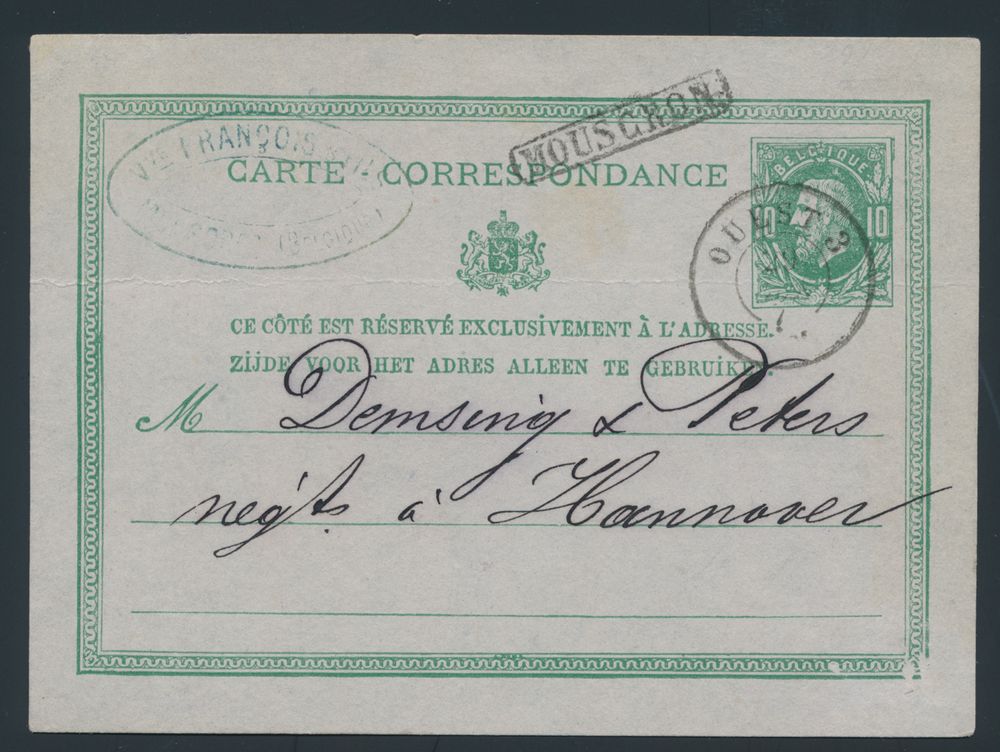 MOUSCRON
FRANÇOIS
(BELGIQUE)
CARTE - CORRESPONDANCE
BELGIQUE
10 10
OUEST 3
CE CÔTÉ EST RÉSERVÉ EXCLUSIVEMENT À L'ADRESSE.
ZIJDE VOOR HET ADRES ALLEEN TE GEBRUIKEN.
M Demsing & Peters
négts à Hannover